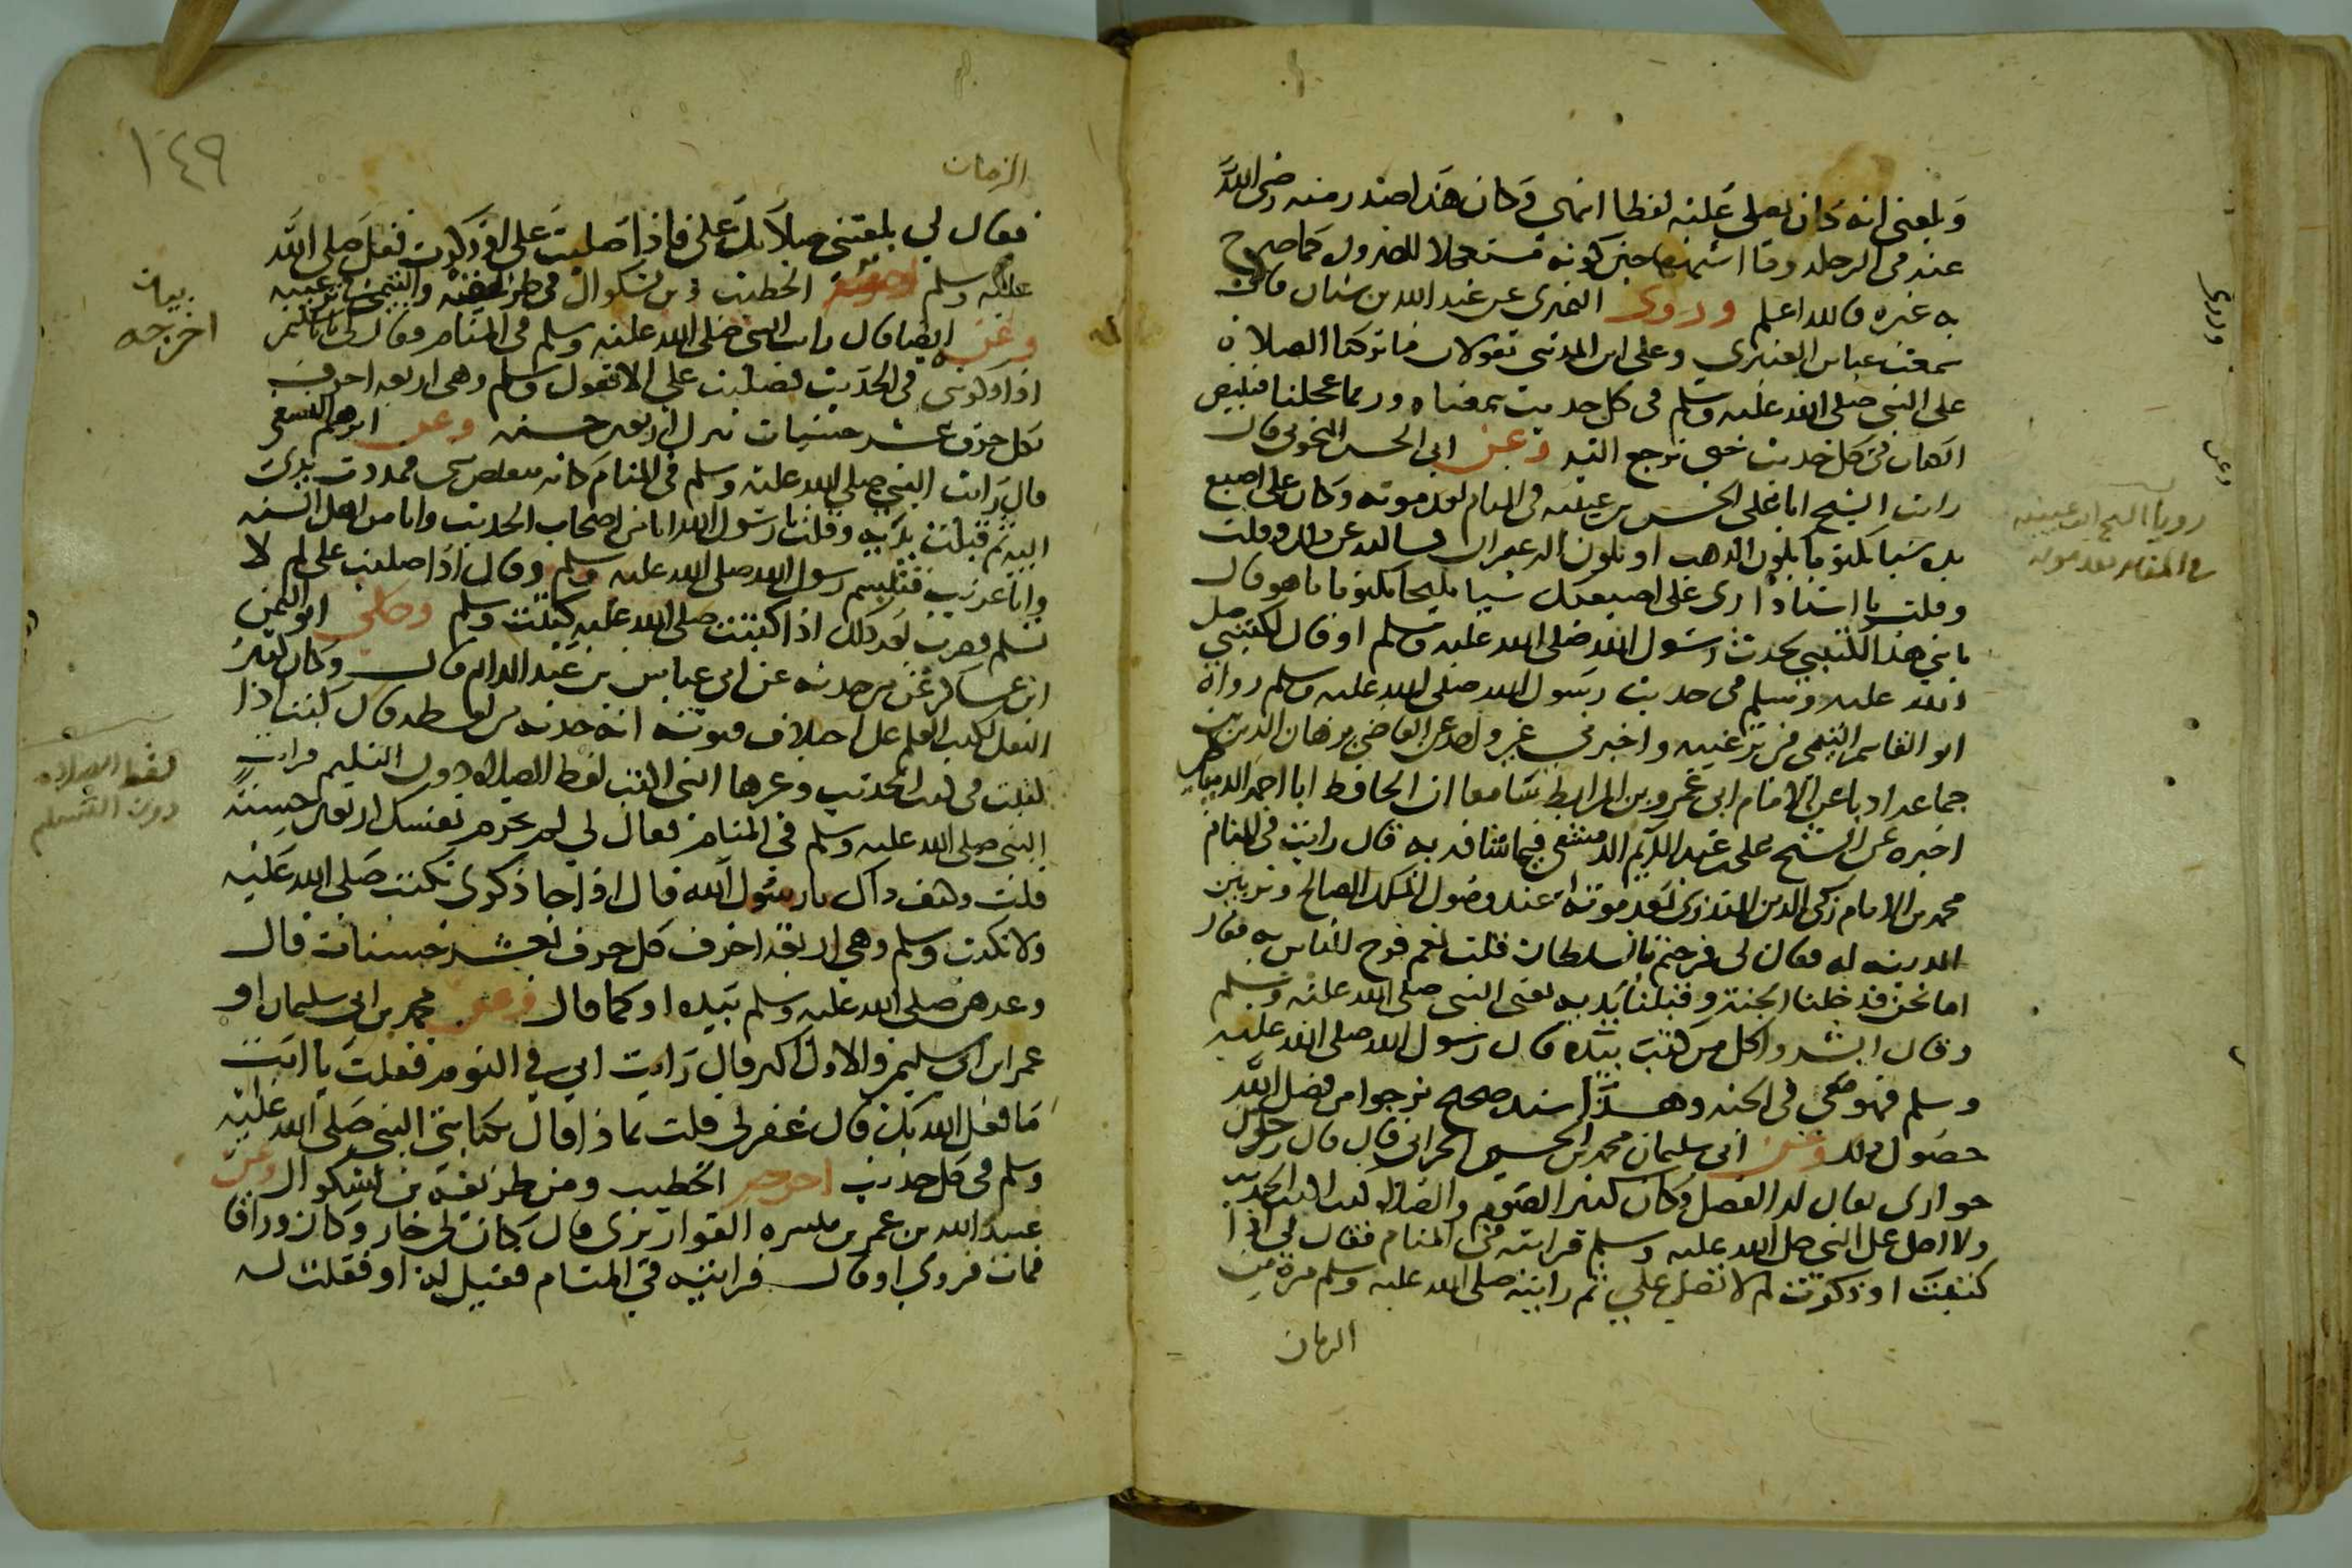 وبلغني انه كان يصلي عليه لفظا انتهى وكان هذا صدر منه رضي الله
عنه في الرحلة وقا اشبهها حين كونه مستعجلا للضرورة كما صرح
به غيره والله اعلم وروى النميري عن عبد الله بن سنان قال
سمعت عباس العنبري وعلي ابن المديني يقولان ما تركنا الصلاة
على النبي صلى الله عليه وسلم في كل حديث سمعناه وربما عجلنا فنبيض
الكتاب في كل حديث حتى نرجع اليه وعن ابي الحسن قال
رايت الشيخ ابا علي الحسن بن عيينه في المنام بعد موته وكان على اصبع
يده شيا مكتوبا بلون الذهب او بلون الزعفران فسالته عن ذلك وقلت
وقلت يا استاذ ارى على اصبعك شيا مليحا مكتوبا ما هو قال
يا بني هذا لكتبي بحديث رسول الله صلى الله عليه وسلم او قال لكتبتي صلى
الله عليه وسلم في حديث رسول الله صلى الله عليه وسلم رواه
ابو القاسم التيمي في ترغيبه واخبرني غير واحد عن القاضي برهان الدين بن
جماعه اذنا عن الامام ابي عمرو بن المرابط سماعا ان الحافظ ابا احمد الدمياطي
اخبره عن الشيخ علي بن عبد الكريم الدمشقي فيما شافهه به قال رايت في المنام
محمد بن الامام زكي الدين المنذري بعد موته عند وصول الملك الصالح وتزيين
المدينه له فقال لي فرحتم بالسلطان قلت نعم فرح الناس به فقال
اما نحن فدخلنا الجنة وقبلنا يديه يعني النبي صلى الله عليه وسلم
وقال ابشروا كل من كتب بيده قال رسول الله صلى الله عليه
وسلم فهو معي في الجنه وهذا سند صحيح نرجوا من فضل الله
حصول ذلك وعن ابي سليمان محمد بن الحسين الحراني قال قال رجل من
جواري يقال له الفضل وكان كثير الصوم والصلاة كنت اكتب الحديث
ولا اصلي على النبي صلى الله عليه وسلم فرايته في المنام فقال لي اذا
كتبت او ذكرت لم لا تصلي علي ثم رايته صلى الله عليه وسلم مرة من
الزمان
وروى
وعن
رويا الشيخ ابن عيينه
في المنام بعد موته
١٤٩
الزمان
فقال لي بلغتني صلاتك علي فاذا صليت علي او ذكرت فقل صلى الله
عليه وسلم اخرجه الخطيب وبن بشكوال في طريقه والتيمي في ترغيبه
وعنه ايضا قال رايت النبي صلى الله عليه وسلم في المنام وقال لي يا ابا سليمان
اذا ذكرتني في الحديث فصليت علي الا تقول وسلم وهي اربعه احرف
بكل حرف عشر حسنات تترك اربعين حسنه وعن ابراهيم النسفي
قال رايت النبي صلى الله عليه وسلم في المنام كانه منقبض مني فمددت يدي
اليه ثم قبلت يديه وقلت يا رسول الله انا من اصحاب الحديث وانا من اهل السنه
وانا غريب فتبسم رسول الله صلى الله عليه وسلم وقال اذا صليت علي لم لا
تسلم فصرت بعد ذلك اذا كتبت صلى الله عليه كتبت وسلم وحكى ابو اليمن
ابن عساكر عن من حدثه عن ابي عباس بن عبد الدايم قال وكان كثير
النقل لكتب العلم على اختلاف فنونه انه حدثه من لفظه قال كنت اذا
كتبت في كتب الحديث وغيرها النبي اكتب لفظ الصلاة دون التسليم فرايت
النبي صلى الله عليه وسلم في المنام فقال لي لم تحرم نفسك اربعين حسنة
قلت وكيف ذاك يا رسول الله قال اذا جا ذكري تكتب صلى الله عليه
ولا تكتب وسلم وهي اربعة احرف كل حرف بعشر حسنات قال
وعدهن صلى الله عليه وسلم بيده او كما قال وعن محمد بن ابي سليمان او
عمر ابن ابي سليمان والاول اكثر قال رايت ابي في النوم فقلت يا ابت
ما فعل الله بك قال غفر لي قلت بماذا قال بكتابتي النبي صلى الله عليه
وسلم في كل حديث اخرجه الخطيب ومن طريقه بن بشكوال وعن
عبيد الله بن عمر بن ميسره القواريري قال كان لي جار وكان وراقا
فمات فروي او قال فرايته في المنام فقيل له او فقلت له
بيان
اخرجه
لفظ الصلاه
دون التسليم